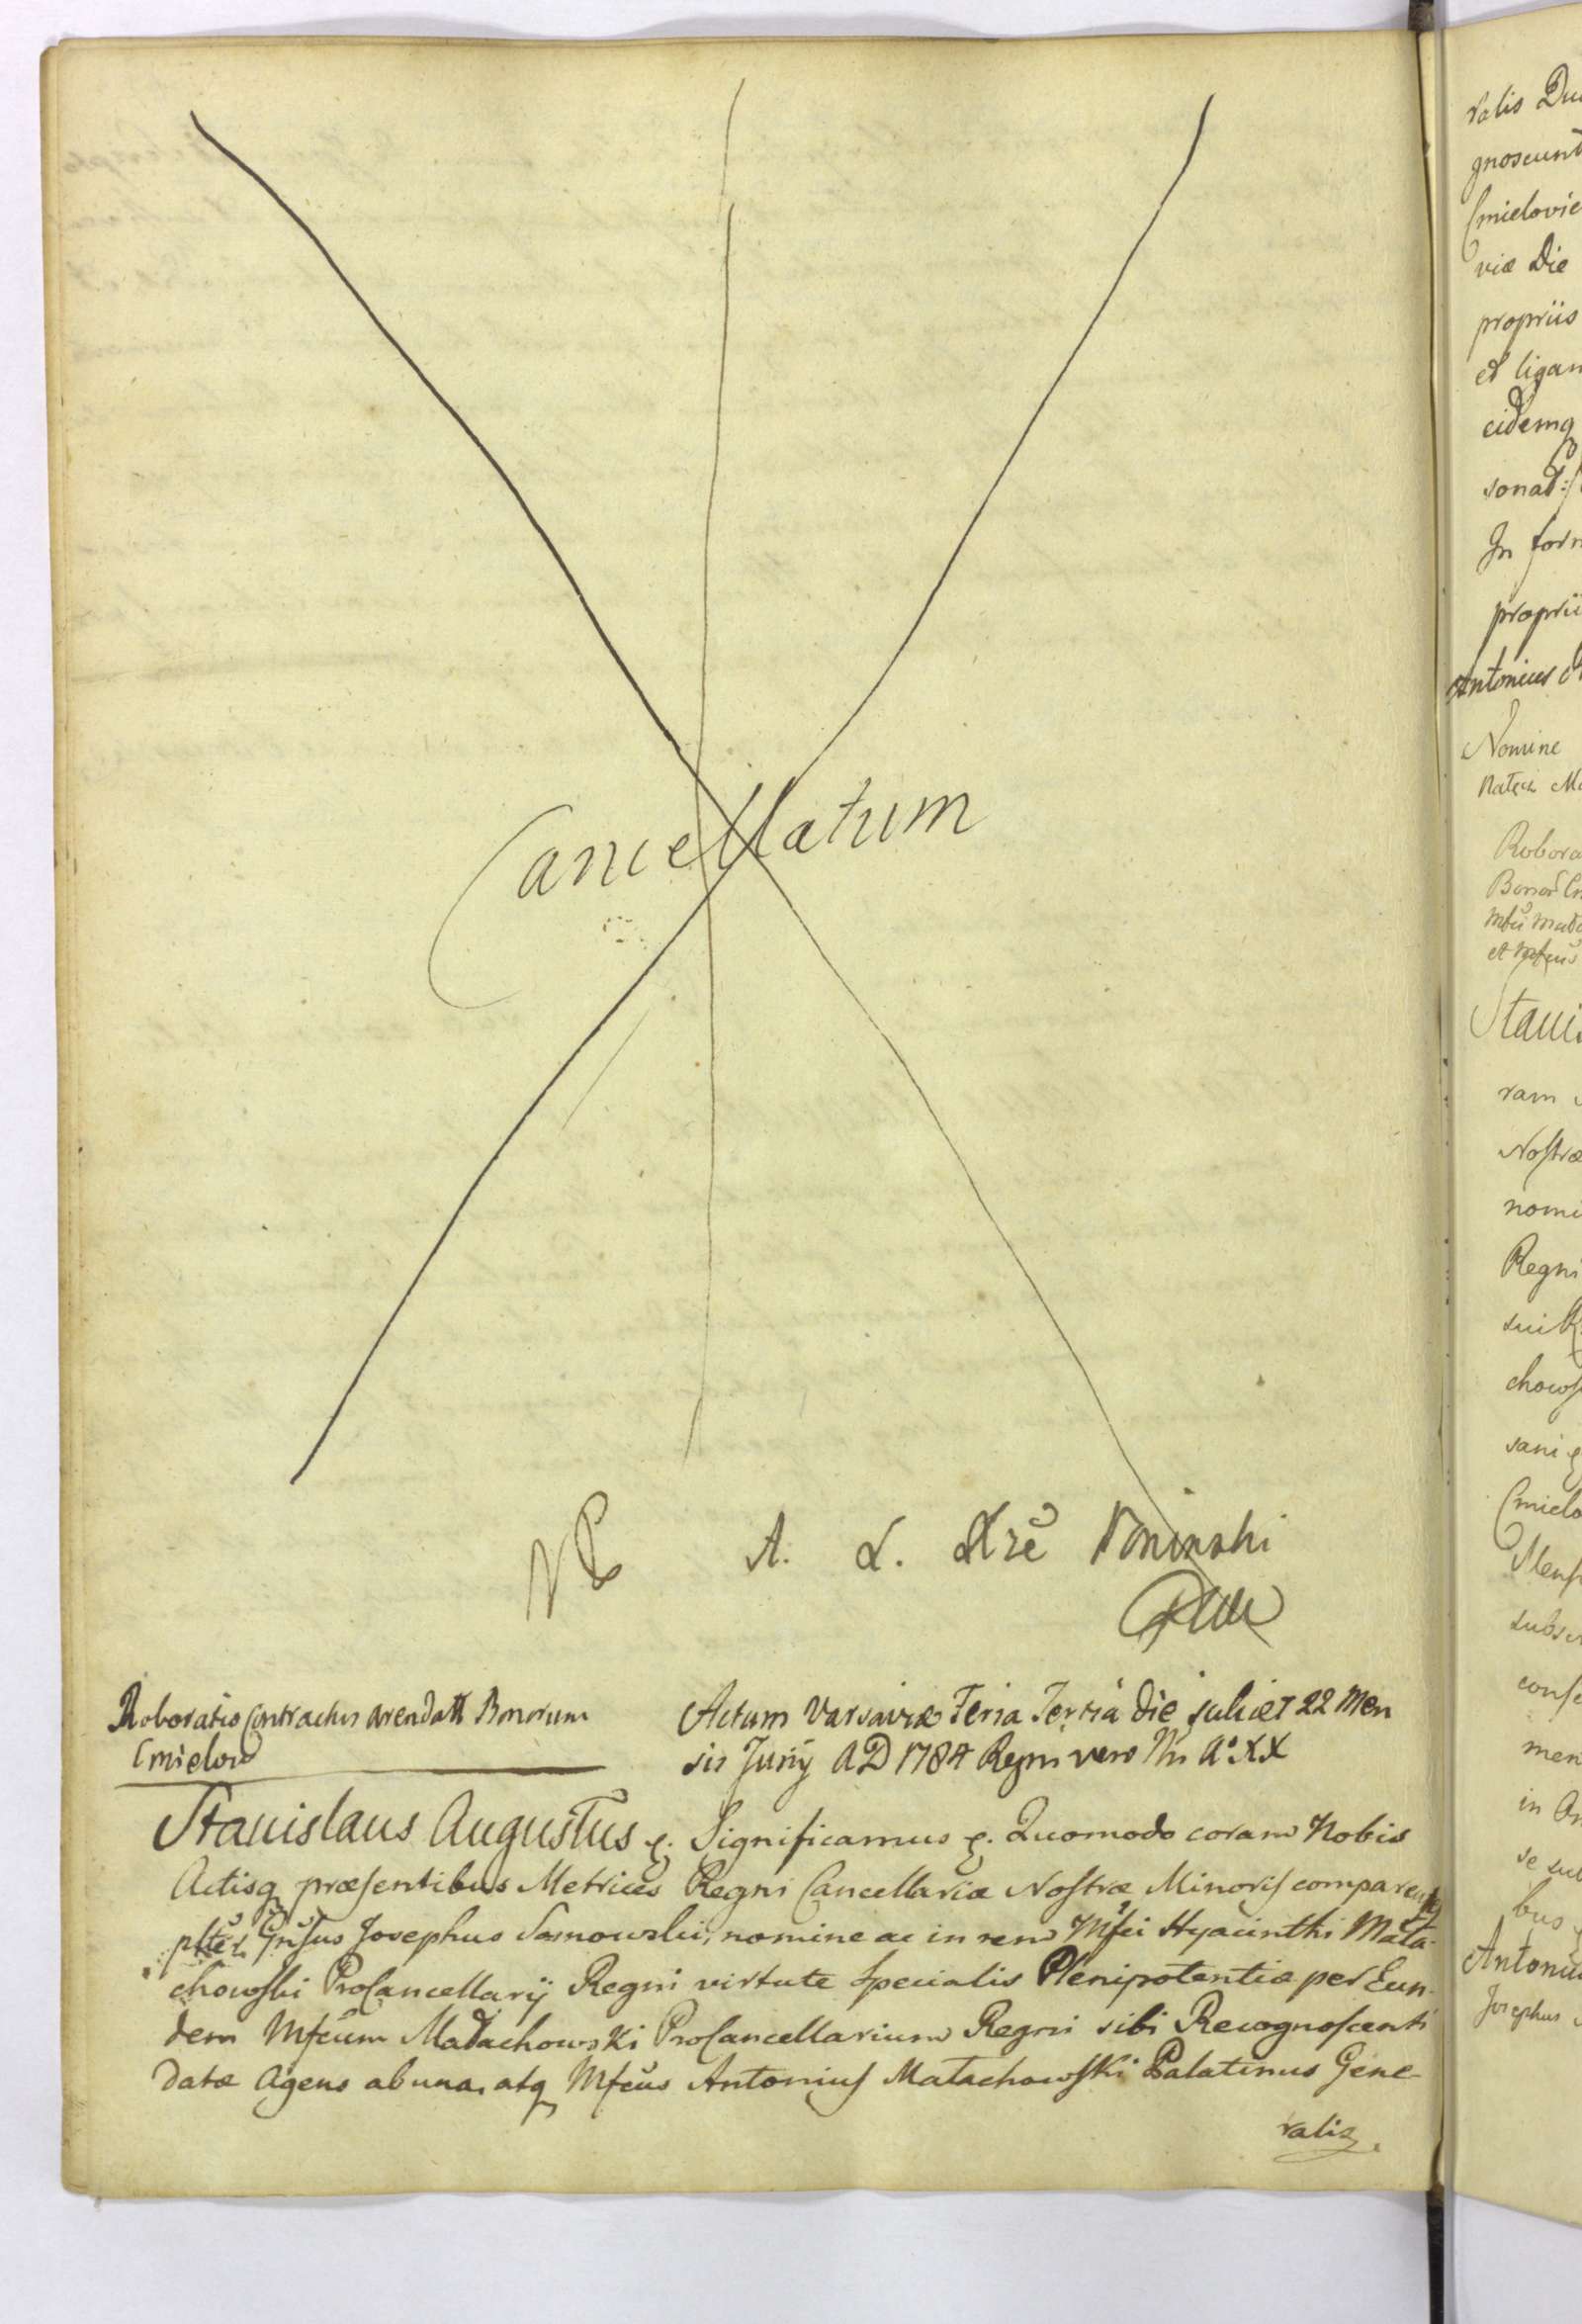 Cancellatum
A. L. Xżē Poninski
Roboratio Contractus arendatt Bonorum
Cmielow
Actum Varsaviæ Feria Tertia die scilicet 22 Men
sis Junÿ AD 1784 Regni vero Nri A° XX
Stanislaus Augustus &. Significamus &. Quomodo coram Nobis
Actisq præsentibus Metrices Regni Cancellariæ Nostræ Minoris comparens
pltēr Gnsus Josephus Somowski, nomine ac in rem Mfci Hyacinthi Mała-
chowski ProCancellarÿ Regni virtute specialis Plenipotentiæ per Eun-
dem Mfcum Małachowski ProCancellarium Regni sibi Recognoscenti
datæ Agens ab una, atq Mfcus Antonius Małachowski Palatinus Gene-
ralis
ralis Du
gnoscunt
Cmielovie
viæ Die
propriis
et ligan
eidemq
sonat:
In form
proprii
Antonius
Nomine
Robora
Stanis
ram
Nostræ
nomi
Regni
chows
sani
Cmielo
Mens
subsc
conse
men
in
se sub
bus
Antonius
Josephus